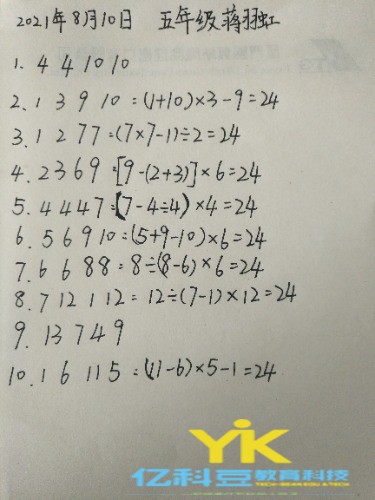 2021年8月10日 五年级蒋羽虹
1. 4 4 10 10
2. 1 3 9 10 =(1+10)×3-9=24
3. 1 2 7 7=(7×7-1)÷2=24
4. 2 3 6 9 =[9-(2+3)]×6=24
5. 4 4 4 7=(7-4÷4)×4=24
6. 5 6 9 10=(5+9-10)×6=24
7. 6 6 8 8=8÷(8-6)×6=24
8. 7 12 1 12=12÷(7-1)×12=24
9. 13 7 4 9
10. 1 6 11 5=(11-6)×5-1=24
YK
亿科豆教育科技